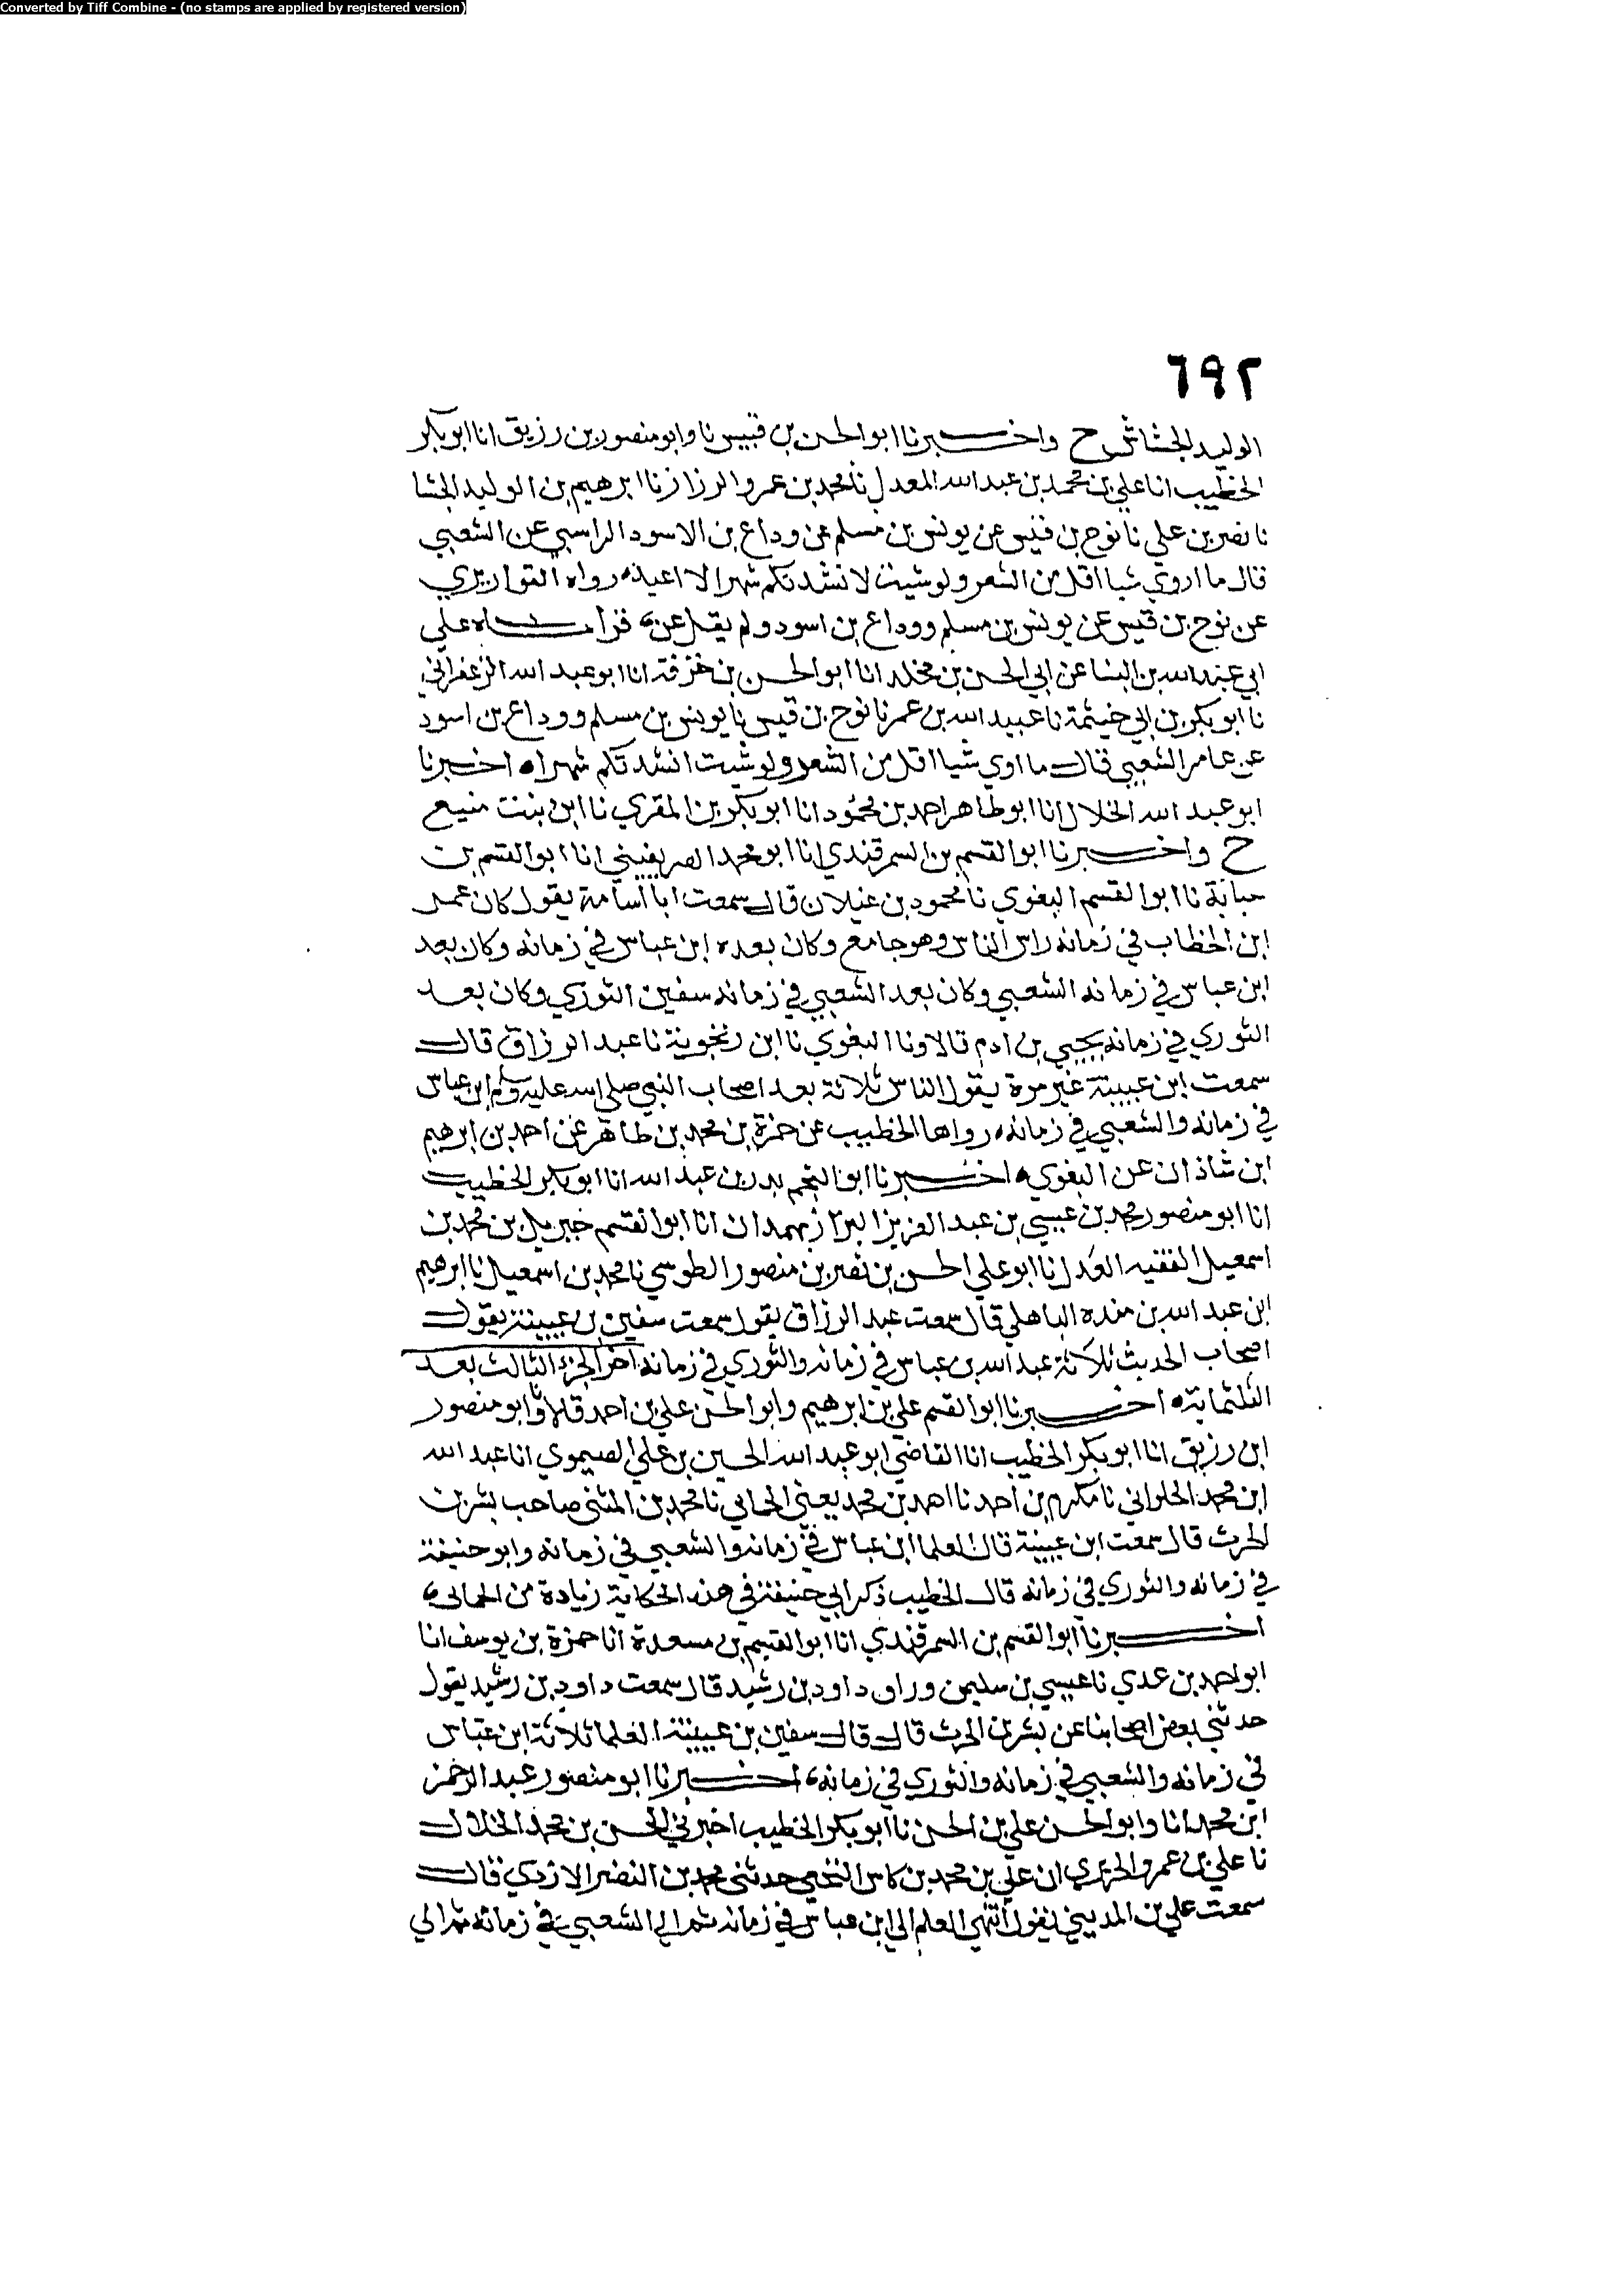 Converted by Tiff Combine - (no stamps are applied by registered version)
٦٩٢
الوليد الجشاش ح واخبرنا ابو الحسن بن قبيس نا وابو منصور بن رزيق انا ابو بكر
الخطيب انا علي بن محمد بن عبد الله المعدل نا محمد بن عمرو الرزاز نا ابرهيم بن الوليد الجشا
نا نصر بن علي نا نوح بن قيس عن يونس بن مسلم عن وداع بن الاسود الراسبي عن الشعبي
قال ما اروي شيا اقل من الشعر ولو شيت لانشدتكم شهرا لا اعيد رواه القواريري
عن نوح بن قيس عن يونس بن مسلم ووداع بن اسود ولم يقل عن قراناه علي
ابي عبد الله بن البنا عن ابي الحسن بن مخلد انا ابو الحسن بن خزفة انا ابو عبد الله الزعفراني
نا ابو بكر بن ابي خيثمة نا عبيد الله بن عمر نا نوح بن قيس نا يونس بن مسلم ووداع بن اسود
عن عامر الشعبي قال ما اوي شيا اقل من الشعر ولو شيت انشدتكم شهرا اخبرنا
ابو عبد الله الخلال انا ابو طاهر احمد بن محمود انا ابو بكر بن المقري نا ابن بنت منيع
ح واخبرنا ابو القسم بن السمرقندي انا ابو محمد الصريفيني انا ابو القسم بن
حبابة نا ابو القسم البغوي نا محمود بن غيلان قال سمعت ابا اسامة يقول كان عمر
ابن الخطاب في زمانه راس الناس وهو جامع وكان بعده ابن عباس في زمانه وكان بعد
ابن عباس في زمانه الشعبي وكان بعد الشعبي في زمانه سفين الثوري وكان بعد
الثوري في زمانه يحيي بن ادم قالا ونا البغوي نا ابن زنجوية نا عبد الرزاق قال
سمعت ابن عيينة غير مرة يقول الناس ثلاثة بعد اصحاب النبي صلي الله عليه وسلم ابن عباس
في زمانه والشعبي في زمانه رواها الخطيب عن حمزة بن محمد بن طاهر عن احمد بن ابرهيم
ابن شاذان عن البغوي اخبرنا ابو النجم بدر بن عبد الله انا ابو بكر الخطيب
انا ابو منصور محمد بن عيسي بن عبد العزيز البزاز بهمدان انا ابو القسم جبريل بن محمد بن
اسمعيل الفقيه العدل نا ابو علي الحسن بن نصر بن منصور الطوسي نا محمد بن اسمعيل نا ابرهيم
ابن عبد الله بن منده الباهلي قال سمعت عبد الرزاق يقول سمعت سفين بن عيينة يقول
اصحاب الحديث ثلاثة عبد الله بن عباس في زمانه والثوري في زمانه اخر الجزء الثالث بعد
الثلثماية اخبرنا ابو القسم علي بن ابرهيم وابو الحسن علي بن احمد قالا نا وابو منصور
ابن رزيق انا ابو بكر الخطيب انا القاضي ابو عبد الله الحسين بن علي الصيموي انا عبد الله
ابن محمد الحلواني نا مكرم بن احمد نا احمد بن محمد يعني الحماني نا محمد بن المثني صاحب بشر بن
الحرث قال سمعت ابن عيينة قال العلما ابن عباس في زمانه والشعبي في زمانه وابو حنيفة
في زمانه والثوري في زمانه قال الخطيب ذكر ابي حنيفة في هذه الحكاية زيادة من الحماني
اخبرنا ابو القسم بن السمرقندي انا ابو القسم بن مسعدة انا حمزة بن يوسف انا
ابو احمد بن عدي نا عيسي بن سليمن وراق داود بن رشيد قال سمعت داود بن رشيد يقول
حدثني بعض اصحابنا عن بشر بن الحرث قال قال سفين بن عيينة العلما ثلاثة ابن عباس
في زمانه والشعبي في زمانه والثوري في زمانه اخبرنا ابو منصور عبد الرحمن
ابن محمد انا وابو الحسن علي بن الحسن نا ابو بكر الخطيب اخبرني الحسن بن محمد الخلال
نا علي بن عمرو الحريري ان علي بن محمد بن كاس النخعي حدثني محمد بن النضر الازدي قال
سمعت علي بن المديني يقول انتهي العلم الي ابن عباس في زمانه ثم الي الشعبي في زمانه ثم الي